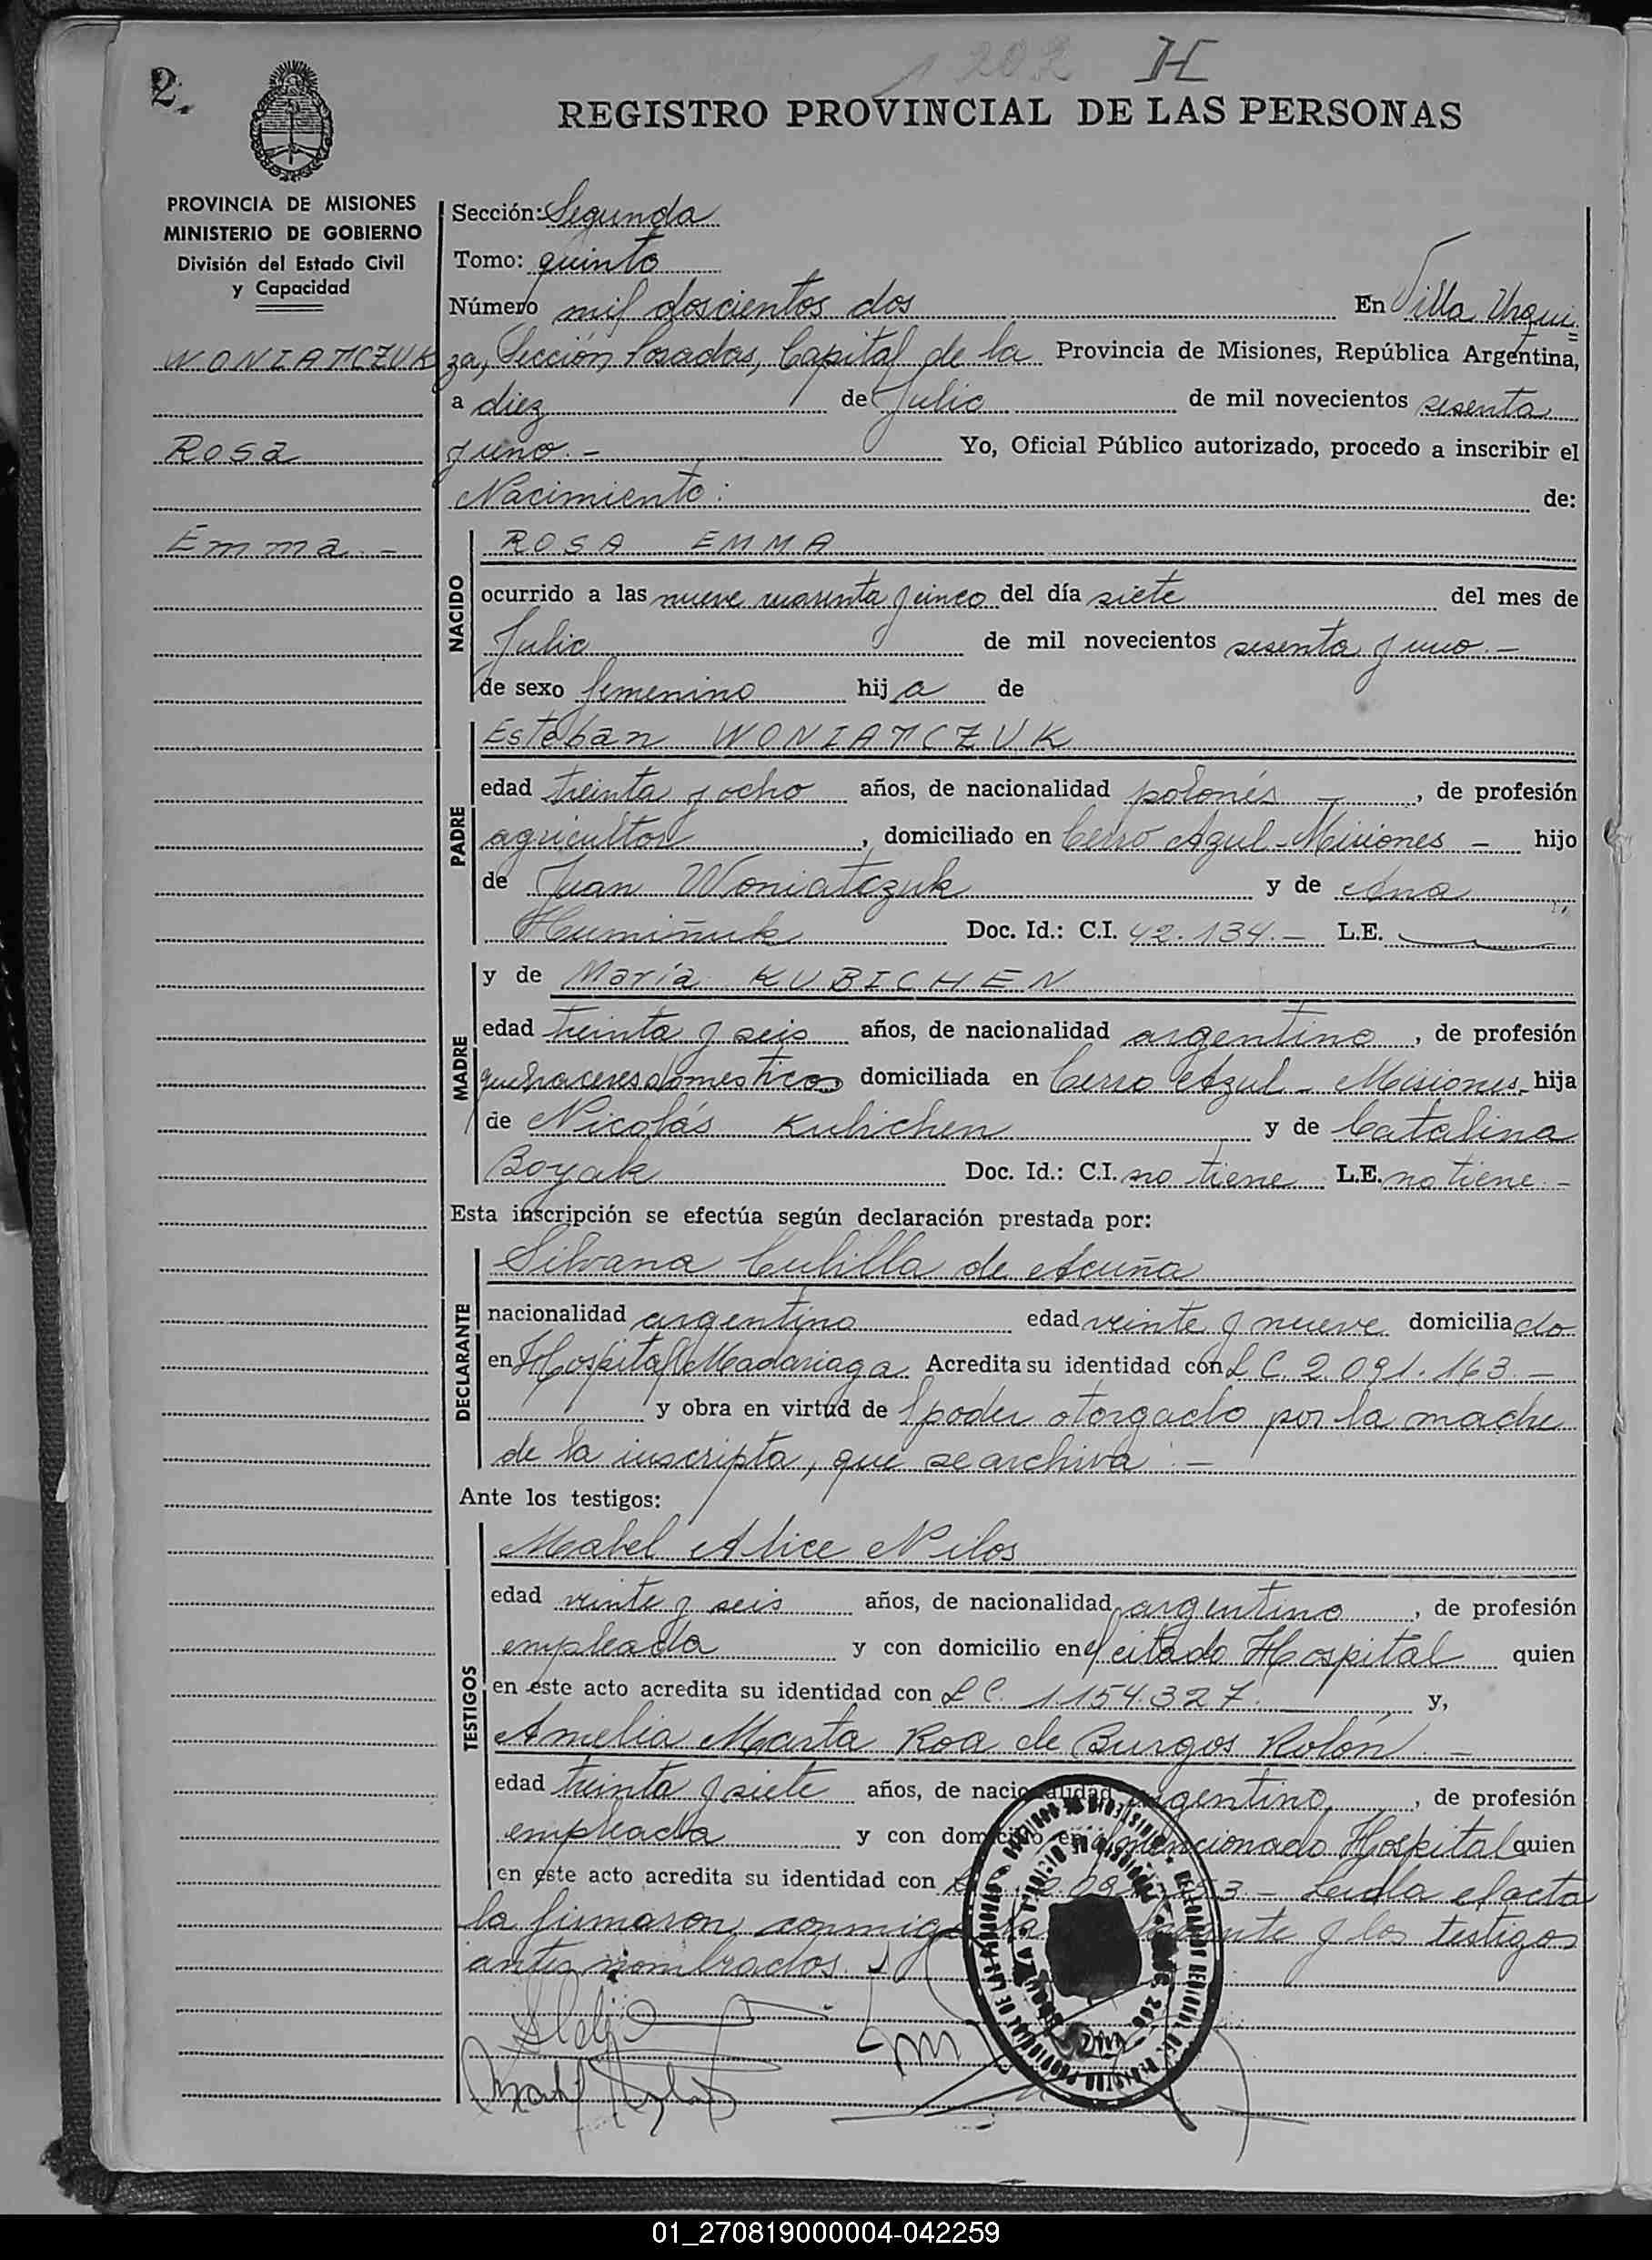 2.
1202 H
REGISTRO PROVINCIAL DE LAS PERSONAS
PROVINCIA DE MISIONES
MINISTERIO DE GOBIERNO
División del Estado Civil
y Capacidad
WONIATCZUK
Rosa
Emma.-
Sección: Segunda
Tomo: quinto
Número mil doscientos dos En Villa Urqui=
za, Sección Posadas, Capital de la Provincia de Misiones, República Argentina,
a diez de Julio de mil novecientos sesenta
y uno.- Yo, Oficial Público autorizado, procedo a inscribir el
Nacimiento: de:
NACIDO
ROSA EMMA
ocurrido a las nueve cuarenta y cinco del día siete del mes de
Julio de mil novecientos sesenta y uno.-
de sexo femenino hija de
PADRE
Esteban WONIATCZUK
edad treinta y ocho años, de nacionalidad polonés - , de profesión
agricultor , domiciliado en Cerro Azul - Misiones - hijo
de Juan Woniatczuk y de Ana
Humiñuk Doc. Id.: C.I. 42.134.- L.E.
MADRE
y de María KUBICHEN
edad treinta y seis años, de nacionalidad argentina , de profesión
quehaceres domésticos domiciliada en Cerro Azul - Misiones - hija
de Nicolás Kubichen y de Catalina
Boyak Doc. Id.: C.I. no tiene L.E. no tiene.-
Esta inscripción se efectúa según declaración prestada por:
DECLARANTE
Silvana Cubilla de Acuña
nacionalidad argentina edad veinte y nueve domiciliado
en Hospital Madariaga Acredita su identidad con L C. 2.091.163.-
y obra en virtud de poder otorgado por la madre
de la inscripta, que se archiva.-
Ante los testigos:
TESTIGOS
Mabel Alice Nilos
edad veinte y seis años, de nacionalidad argentina , de profesión
empleada y con domicilio en el citado Hospital quien
en este acto acredita su identidad con L C. 1.154.327. y,
Amelia Marta Roa de Burgos Rolón.-
edad treinta y siete años, de nacionalidad argentina , de profesión
empleada y con domicilio en el mencionado Hospital quien
en este acto acredita su identidad con 3 - Leida el acta
la firmaron conmigo la y los testigos
antes nombrados.
01_270819000004-042259